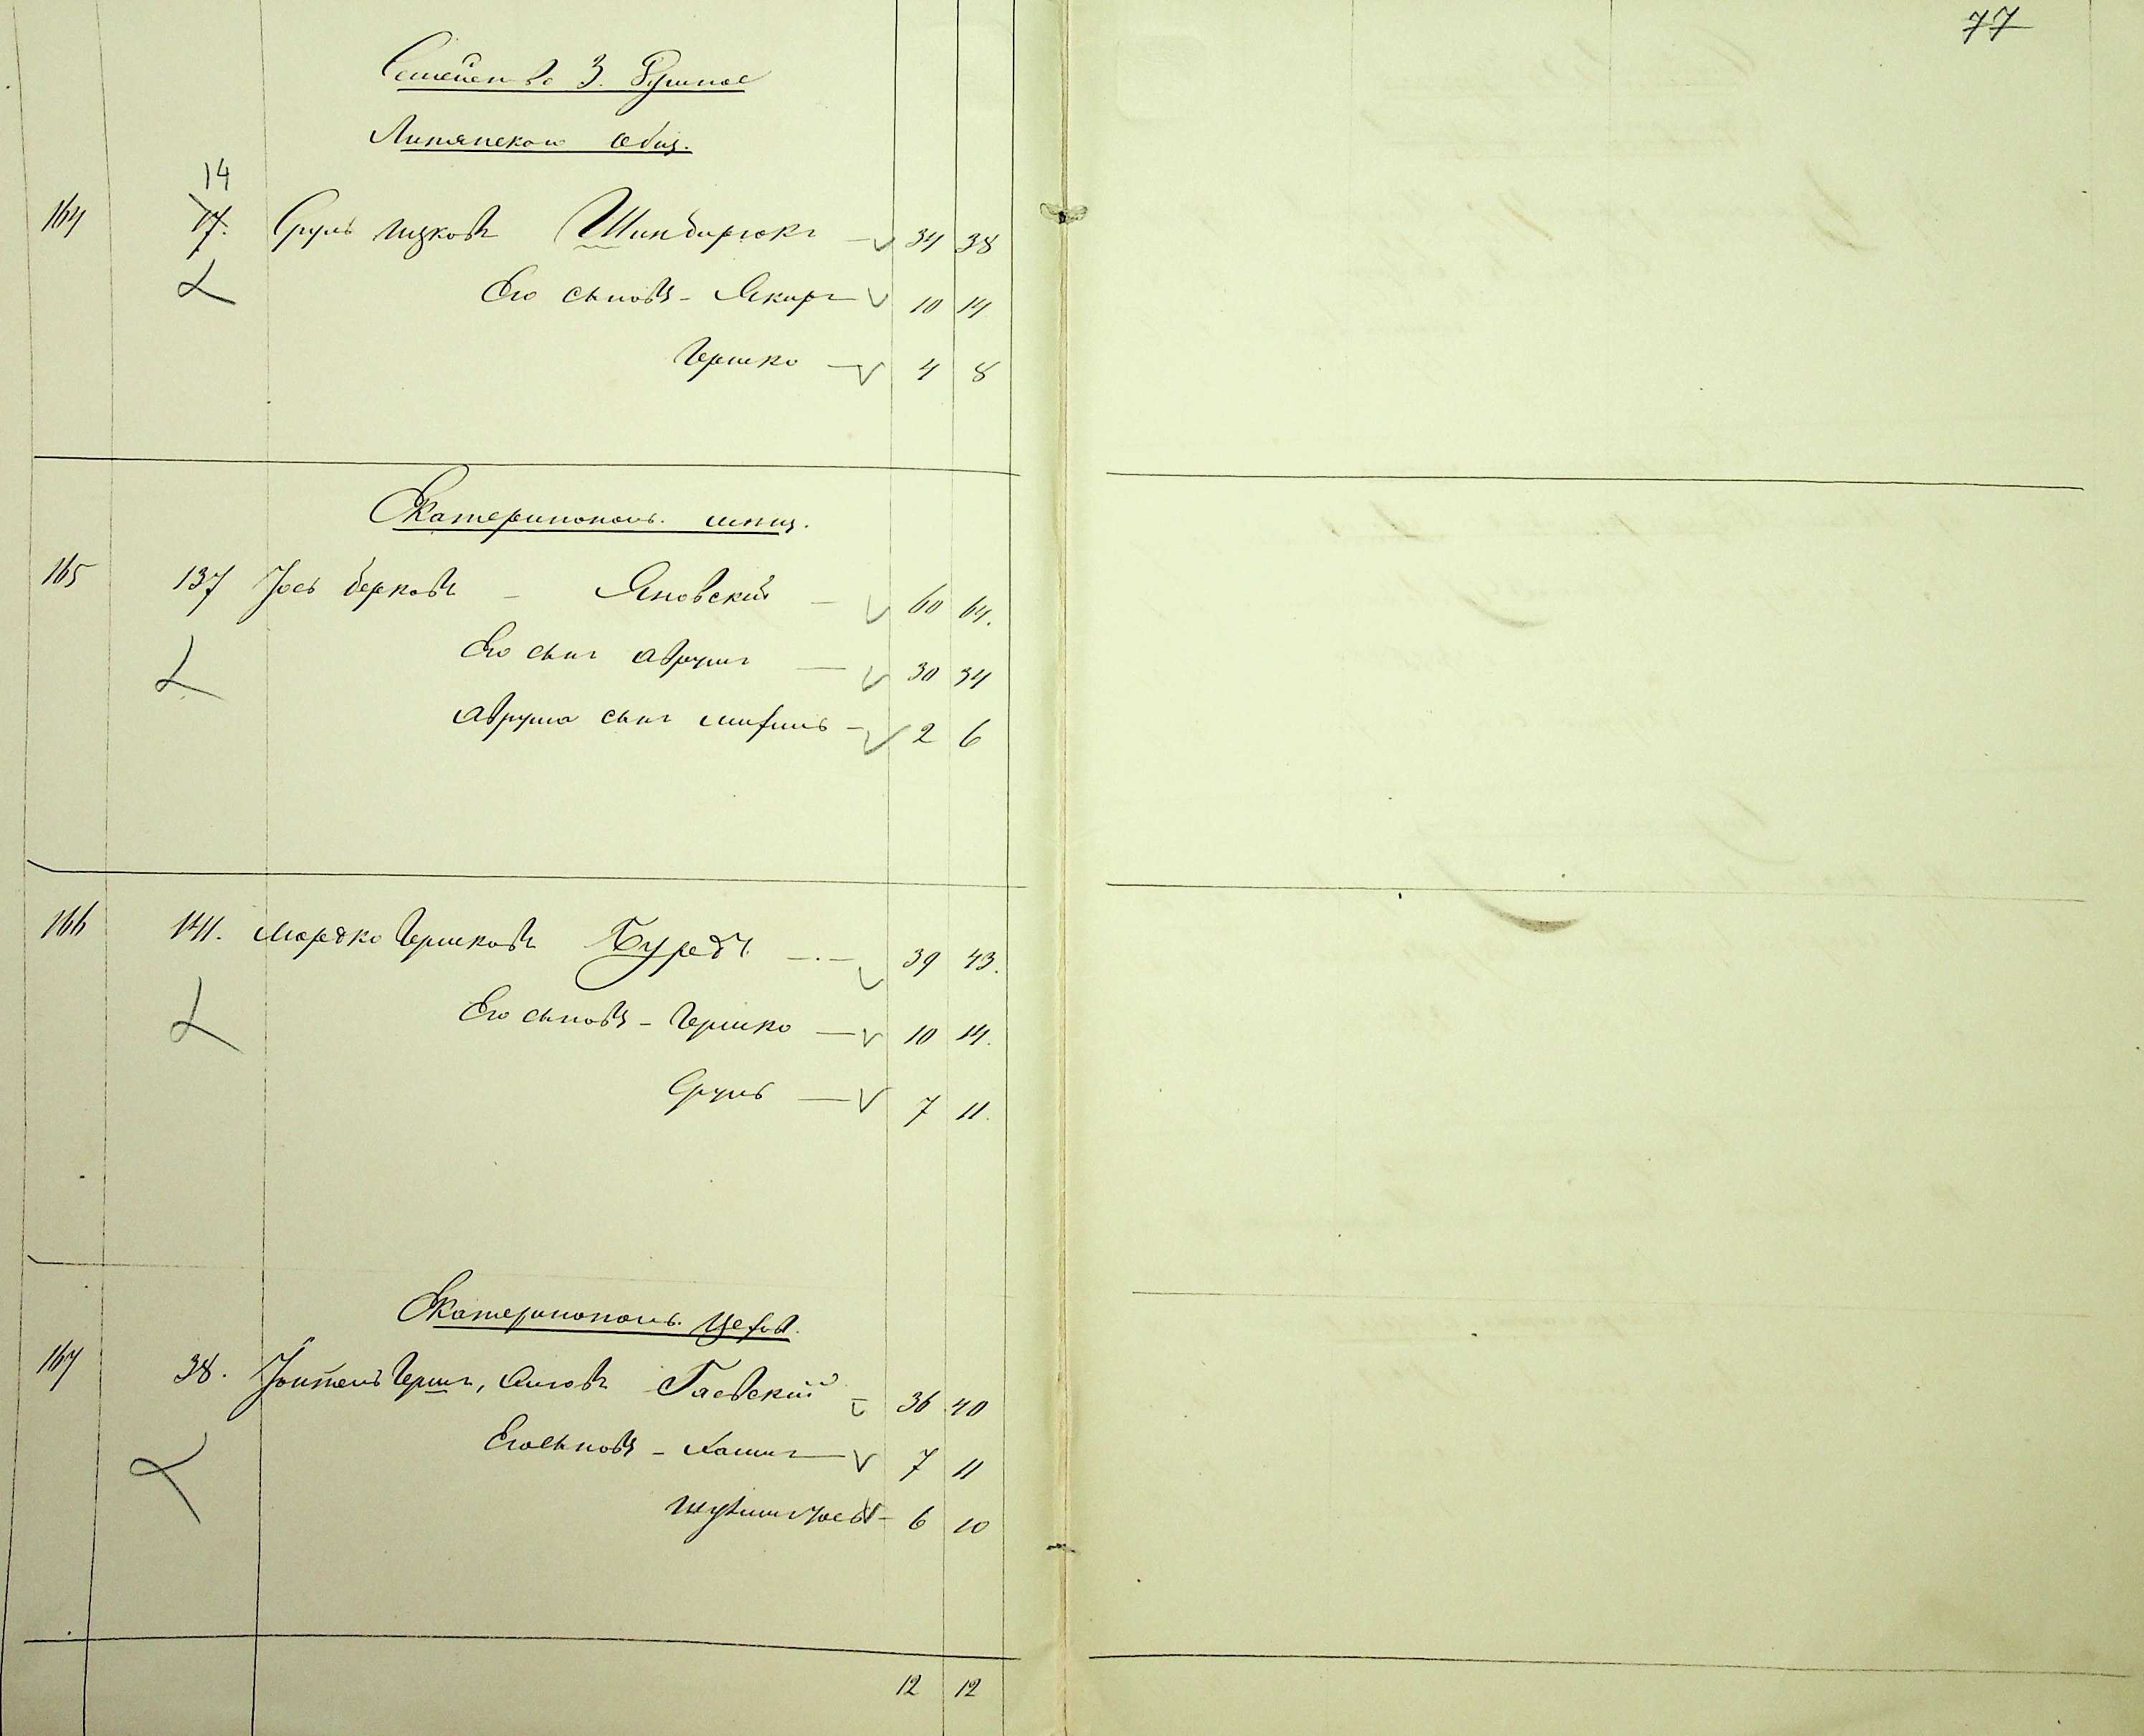 77
Семейство З. Купцов
Липянскаго Общ.
14
164 17. Сруль Ицковъ Шинбирюкъ 34 38
Его сыновья - Якиръ 10 14
Гершко 4 8
Екатеринополь. мѣщ.
165 137 Іось Берковъ - Яновский - 60 64.
Его сынъ Аврумъ 30 34
Аврума сынъ 2 6
166 141. Мордко Гершковъ Бурдъ 39 43.
Его сыновья - Гершко 10 14.
Сруль 7 11.
Екатеринополь. Цехов.
167 38. Гершъ, Гаевский 36 40
Его сыновья - 7 11
6 10
12 12